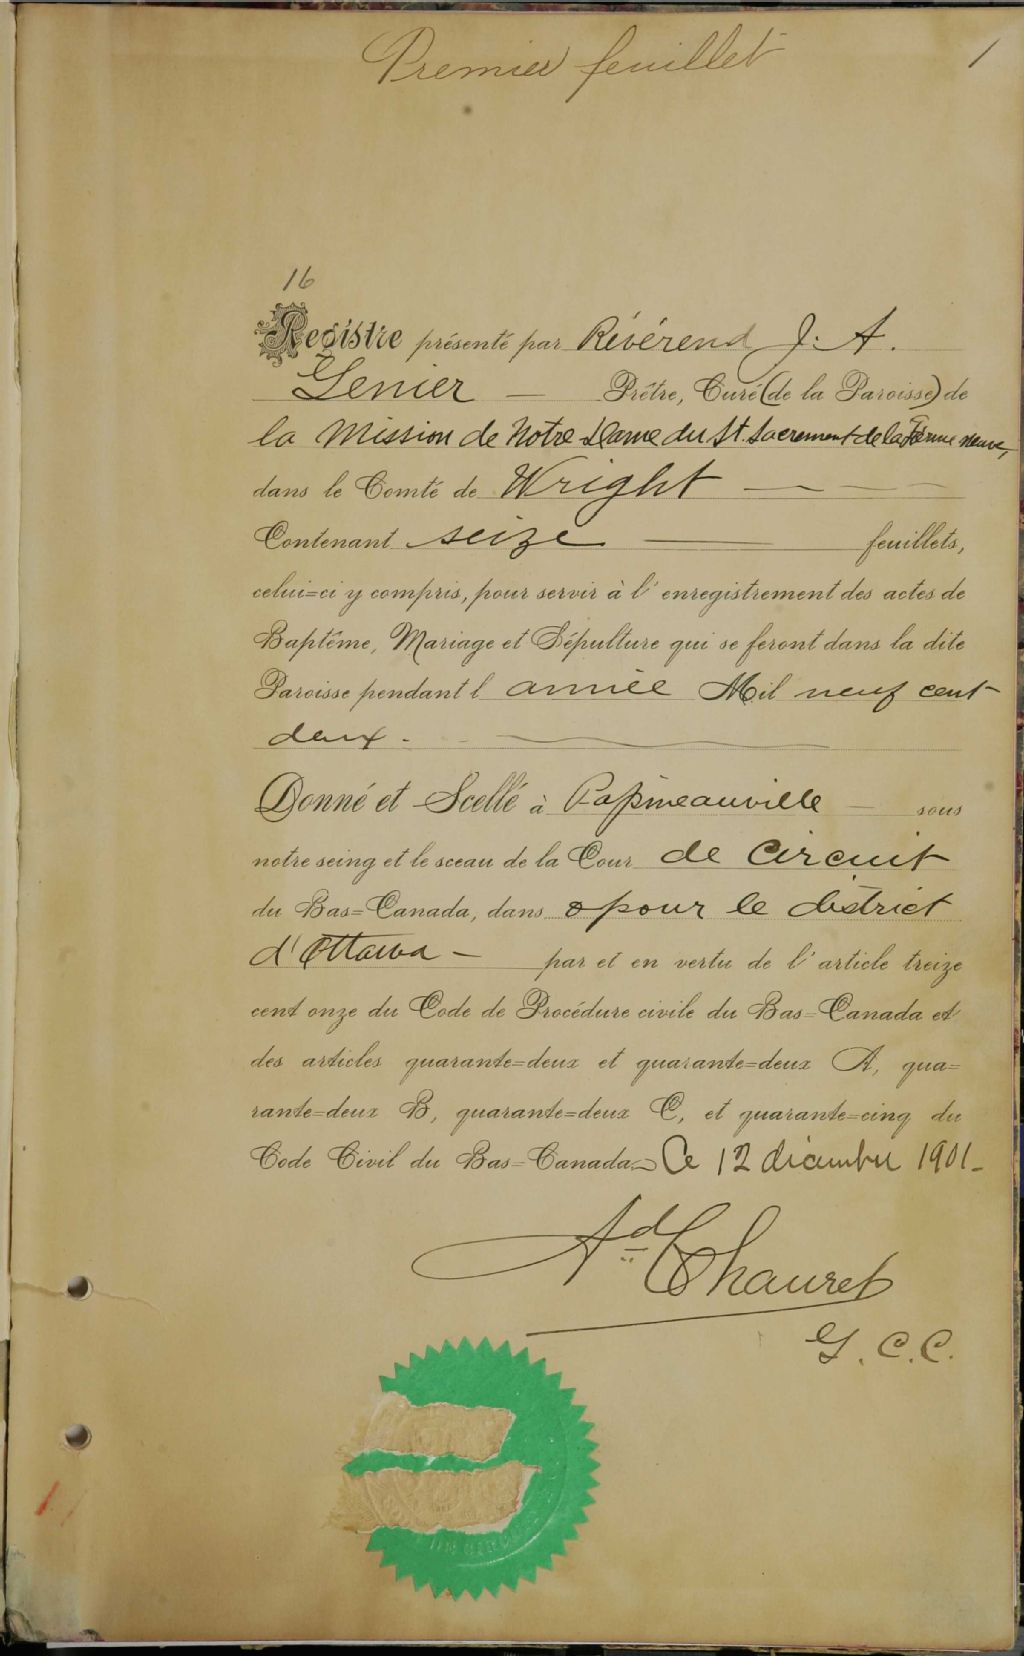 Premier feuillet
1
16
Registre présenté par Révérend J. A.
Genier — Prêtre, Curé (de la Paroisse) de
la Mission de Notre Dame du St. Sacrement de la Ferme neuve,
dans le Comté de Wright — — —
Contenant seize — feuillets,
celui=ci y compris, pour servir à l'enregistrement des actes de
Baptême, Mariage et Sépulture qui se feront dans la dite
Paroisse pendant l année Mil neuf cent
deux.
Donné et Scellé à Papineauville — sous
notre seing et le sceau de la Cour de Circuit
du Bas=Canada, dans & pour le district
d'Ottawa — par et en vertu de l'article treize
cent onze du Code de Procédure civile du Bas=Canada et
des articles quarante=deux et quarante=deux A, qua=
rante=deux B, quarante=deux C, et quarante=cinq du
Code Civil du Bas=Canada. Ce 12 décembre 1901_
Ad Chauret
G. C. C.